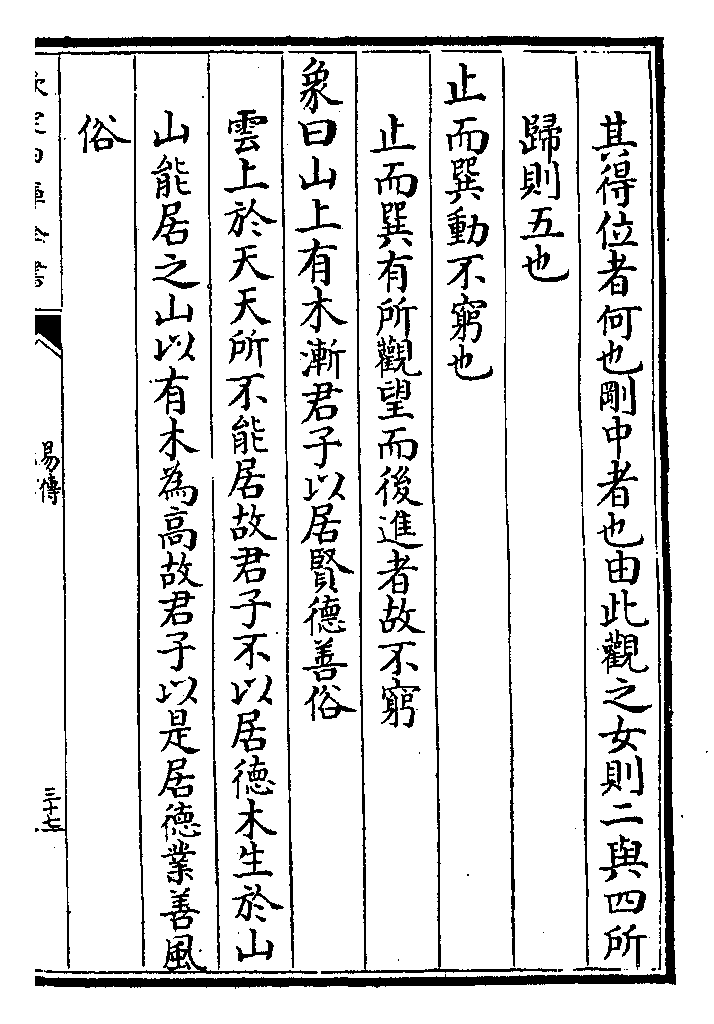 其得位者何也剛中者也由此觀之女則二與四所
歸則五也
止而巽動不窮也
止而巽有所觀望而後進者故不窮
象曰山上有木漸君子以居賢德善俗
雲上於天天所不能居故君子不以居德木生於山
山能居之山以有木為高故君子以是居德業善風
俗
易傳
三十七